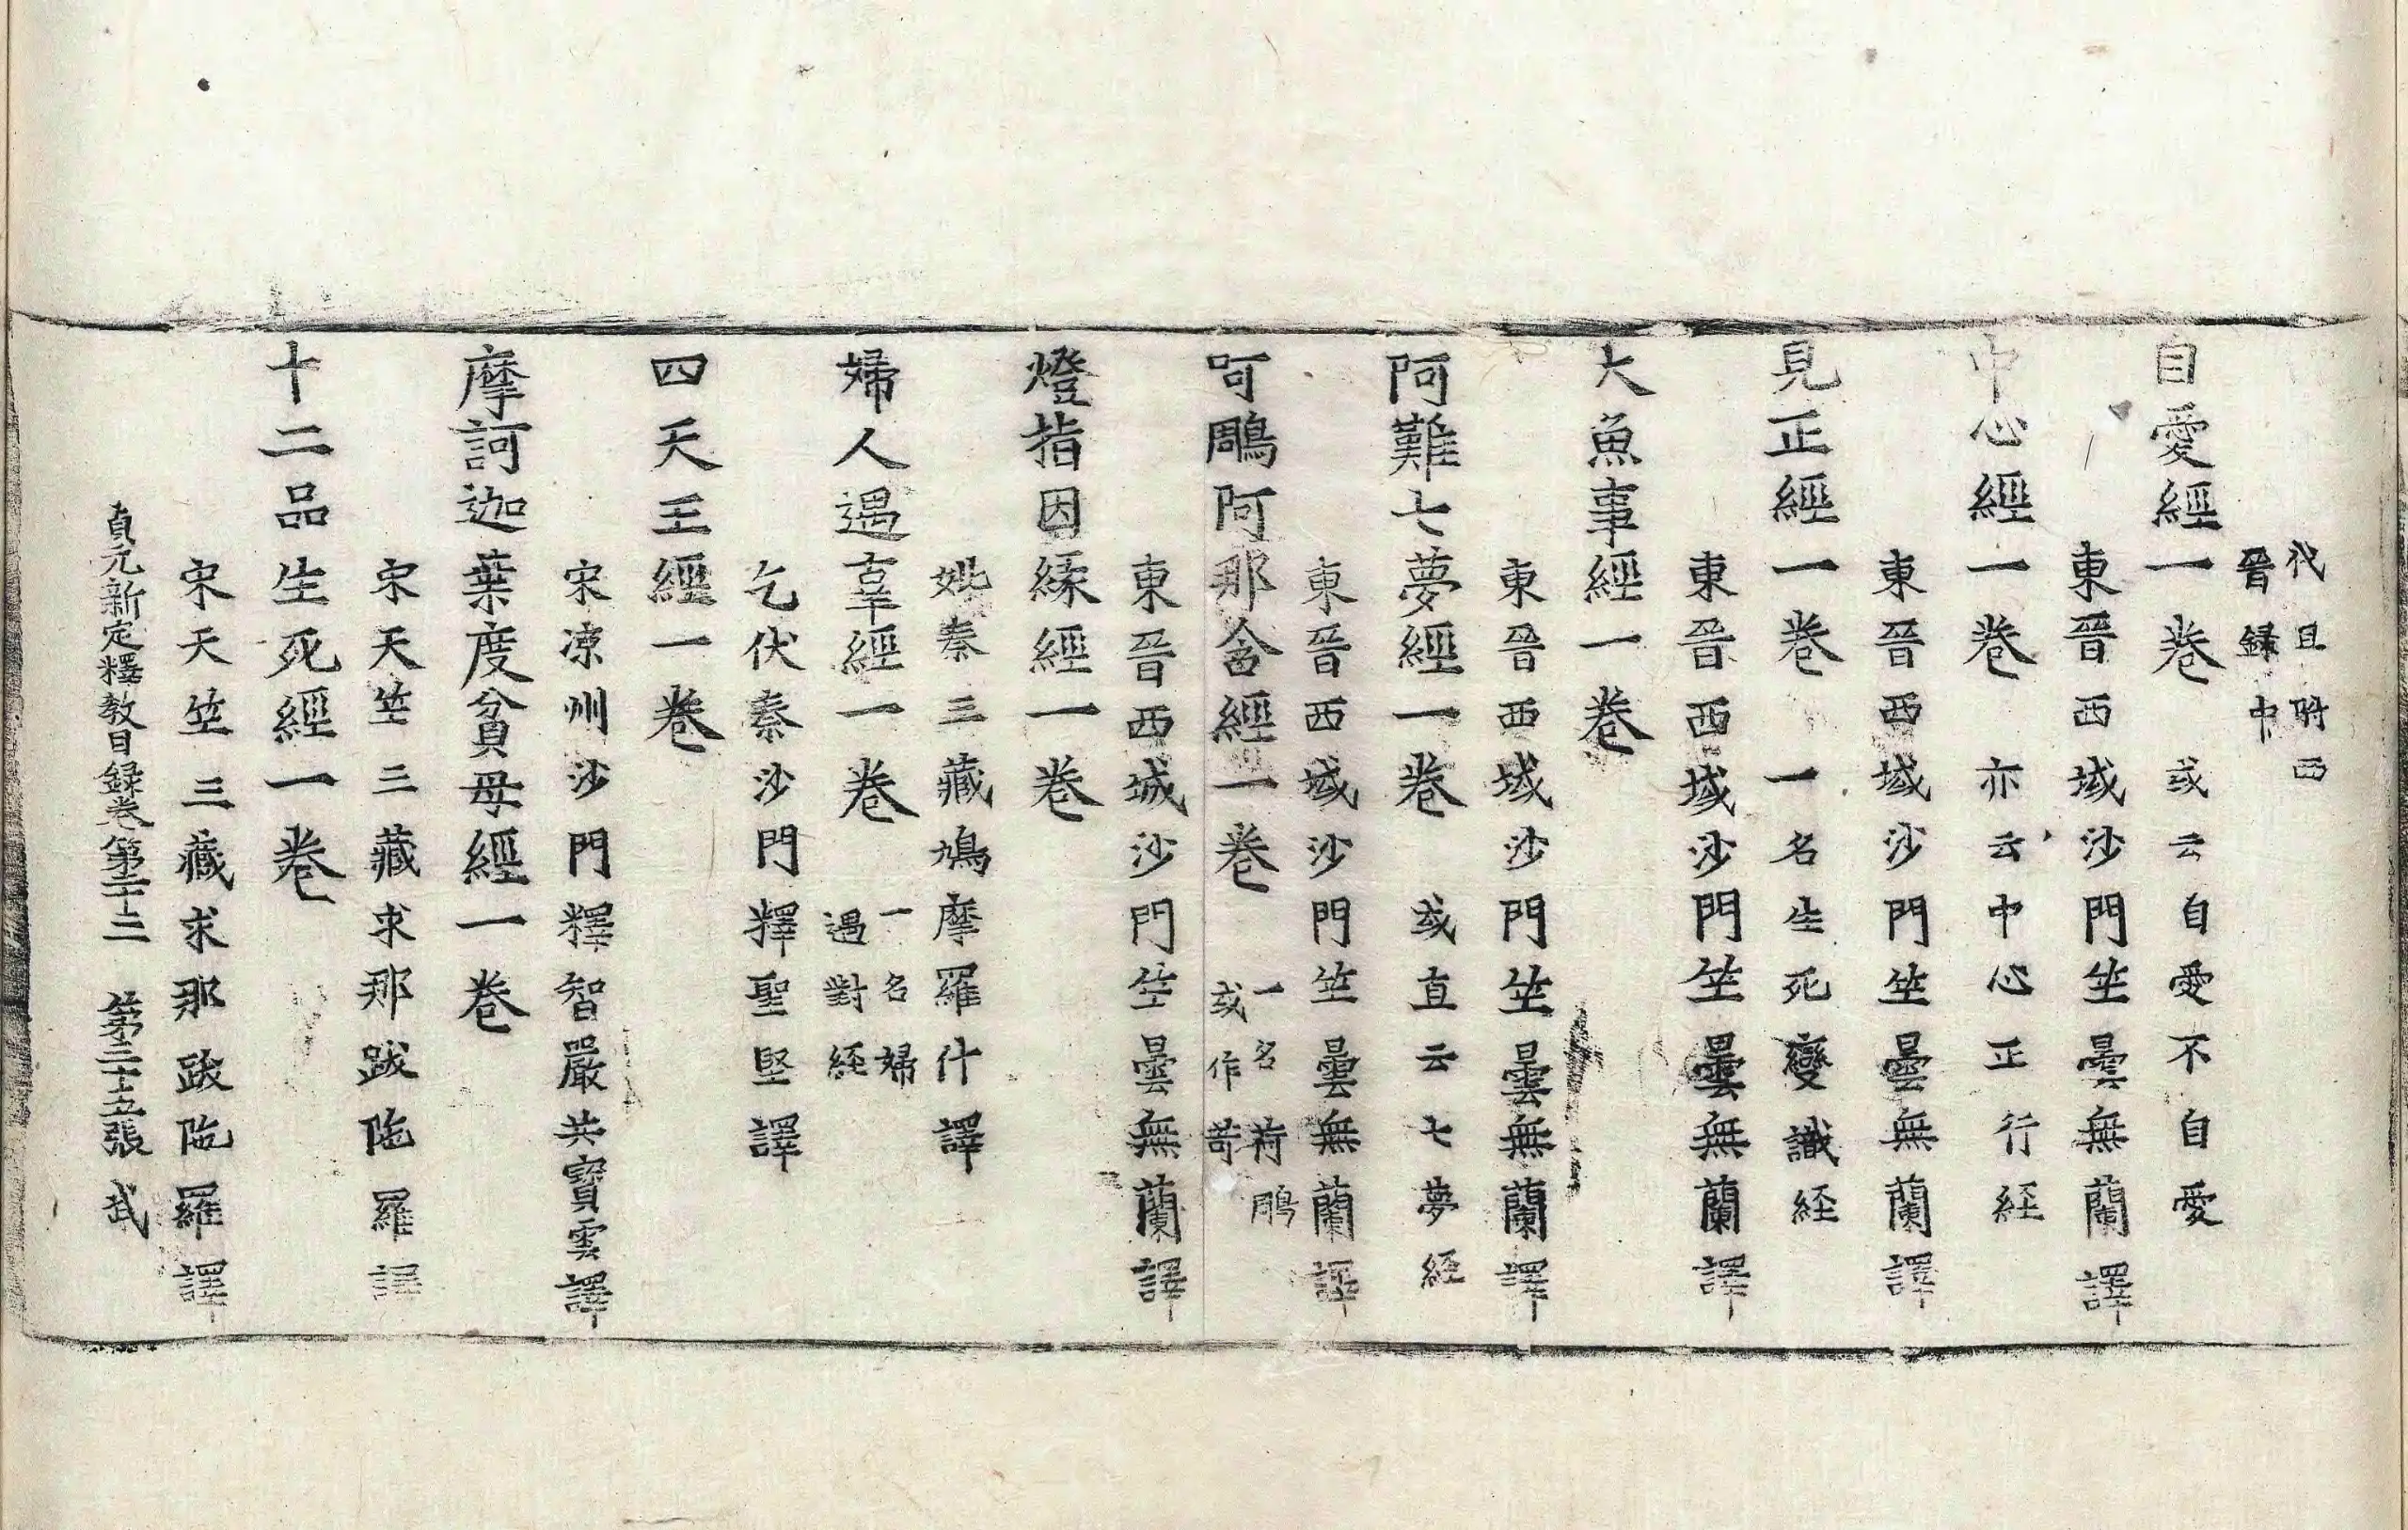 代且附西
晉録中
自愛經一卷 或云自愛不自愛
東晉西域沙門竺曇無蘭譯
中心經一卷 亦云中心正行経
東晉西域沙門竺曇無蘭譯
見正經一卷 一名生死變識経
東晉西域沙門竺曇無蘭譯
大魚事經一卷
東晉西域沙門竺曇無蘭譯
阿難七夢經一卷 或直云七夢経
東晉西域沙門竺曇無蘭譯
呵鵰阿那含經一卷 一名荷鵰
或作苛
東晉西域沙門竺曇無蘭譯
燈指因縁經一卷
姚秦三藏鳩摩羅什譯
婦人遇辜經一卷 一名婦
遇對経
乞伏秦沙門釋聖堅譯
四天王經一卷
宋凉州沙門釋智嚴共寶雲譯
摩訶迦葉度貧母經一卷
宋天竺三藏求那跋陁羅譯
十二品生死經一卷
宋天竺三藏求那跋陁羅譯
貞元新定釋教目録卷第二十二 第二十五張 武